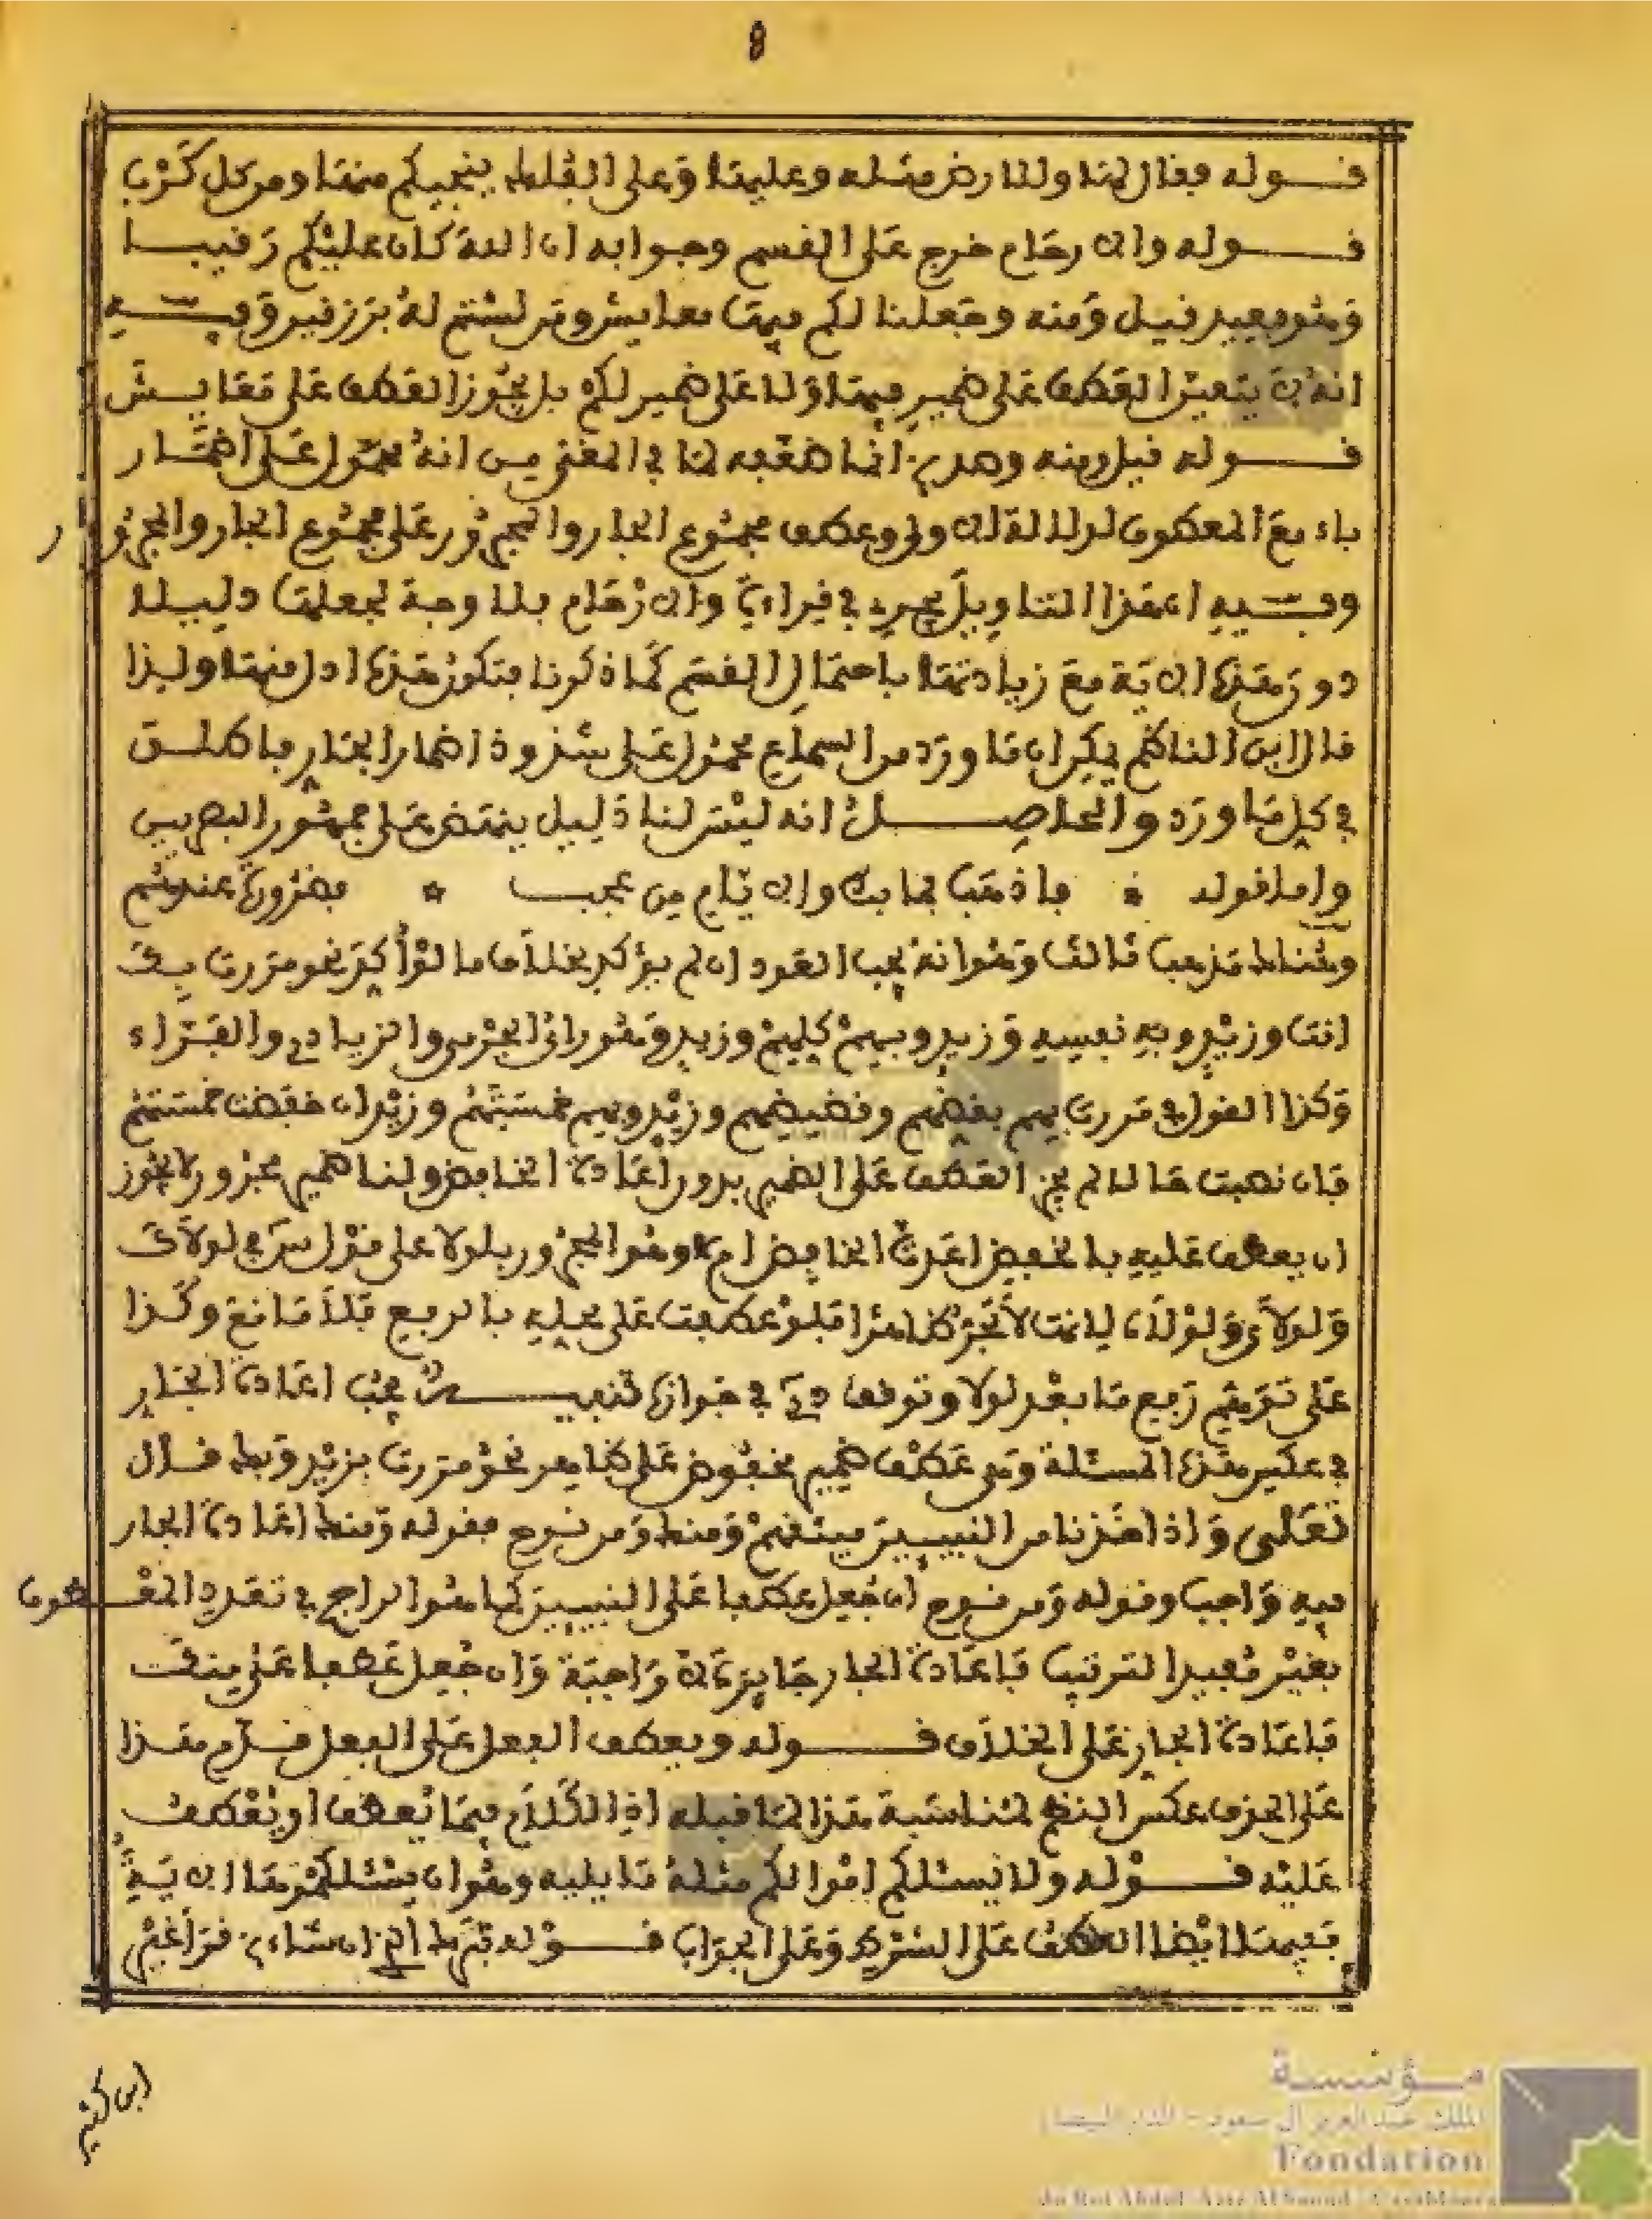 8
قوله فقال لها وللارض مثله وعليها وعلى الفلك ينجيكم منها ومن كل كرب
قوله والارحام خرج على القسم وجوابه ان الله كان عليكم رقيبا
وهو بعيد قيل ومنه وجعلنا لكم فيها معايش ومن لستم له برازقين وفيه
انه لا يتعين العطف على ضمير فيها ولا على ضمير لكم بل يجوز العطف على معايش
قوله قيل ومنه وصد انما ضعفه لما في المغني من انه محمول على اضمار
باء مع المعطوف لدلالة الاولى وعطف مجموع الجار والمجرور على مجموع الجار والمجرور
وفيه ان هذا التاويل يجري في قراءة والارحام بلا وجه لجعلها دليلا
دون هذه الاية مع زيادتها باحتمال القسم كما ذكرنا فتكون هذه ادل منها ولذا
قال ابن الناظم يمكن ان ما ورد من السماع محمول على شذوذ اضمار الجار ما طلق
في كل ما ورد والحاصل انه ليس لنا دليل ينتهض على جمهور البصريين
واما قوله * فاذهب فما بك والايام من عجب * فضرورة عندهم
وهناك مذهب ثالث وهو انه يجب العود ان لم يؤكد بخلاف ما لو أكد نحو مررت بك
انت وزيد وبه نفسه وزيد وبهم كلهم وزيد وهو رأي الجرمي والزيادي والفراء
وكذا القول في مررت بهم بعضهم وقضيضهم وزيد وبهم خمستهم وزيد ان خفضت خمستهم
فان نصبت حالا لم يجز العطف على الضمير بدون اعادة الخافض ولنا ضمير مجرور لا يجوز
ان يعطف عليه بالخفض اعدت الخافض ام لا وهو المجرور بلولا على قول س في لولاك
ولولاي ولولاه لانها لا تجر ظاهرا فلو عطفت على محله بالرفع فلا مانع وكذا
على توهم رفع ما بعد لولا وتوقف في جوازه تنبيه يجب اعادة الجار
في عكس هذه المسئلة وهي عطف ضمير مخفوض على ظاهر نحو مررت بزيد وبك قال
تعالى واذ اخذنا من النبيين ميثاقهم ومنك ومن نوح فقوله ومنك اعادة الجار
فيه واجب وقوله ومن نوح ان جعل عطفا على النبيين كما هو الراجح في تعدد المعطوف
بغير مفيد الترتيب فاعادة الجار جايزة لا واجبة وان جعل عطفا على منك
فاعادة الجار على الخلاف قوله ويعطف الفعل على الفعل قدم هذا
على الحذف عكس النظم لمناسبة هذا لما قبله اذ الكلام فيما يعطف او يعطف
عليه قوله ولا يسئلكم اموالكم مثله ما يليه وهو ان يسئلكموها الاية
ففيها ايضا العطف على الشرط وعلى الجواب قوله تبرك الذي ان شاء قرأ غير
ابن كثير
مؤسسة
الملك عبد العزيز آل سعود - الدار البيضاء
Fondation
du Roi Abdul-Aziz Al Saoud - Casablanca